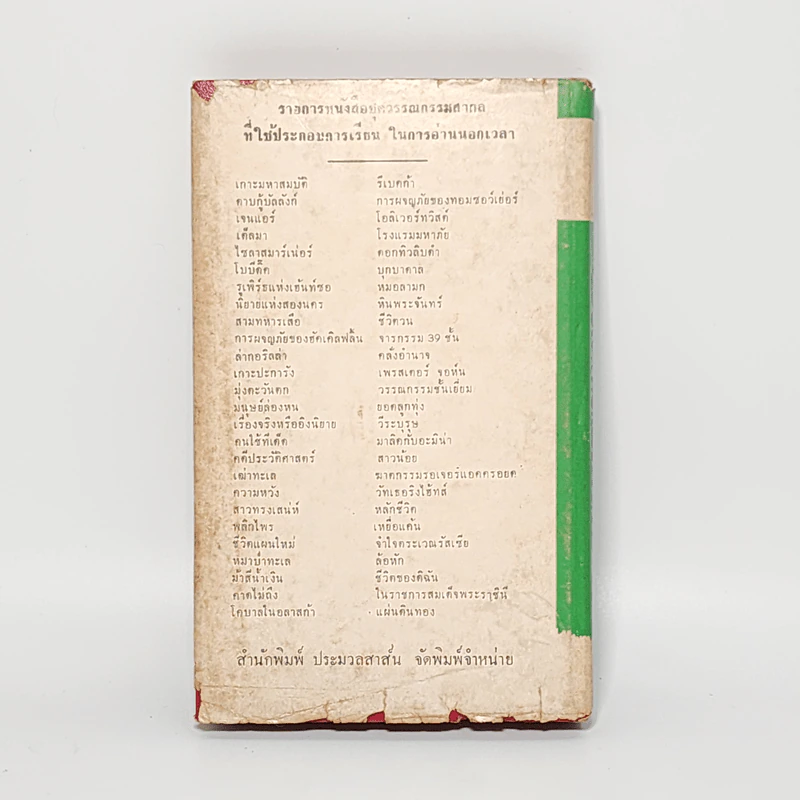 รายการหนังสือชุดวรรณกรรมสากล
ที่ใช้ประกอบการเรียน ในการอ่านนอกเวลา
เกาะมหาสมบัติ
ดาบกู้บัลลังก์
เจนแอร์
เด็ลมา
ไซลาสมาร์เน่อร์
โมบีดิ๊ค
รูเพิร์ธแห่งเฮ้นท์ซอ
นิยายแห่งสองนคร
สามทหารเสือ
การผจญภัยของฮัคเคิลฟลิ้น
ล่ากอริลล่า
เกาะปะการัง
มุ่งตะวันตก
มนุษย์ล่องหน
เรื่องจริงหรืออิงนิยาย
คนใช้ที่เด็ด
คดีประวัติศาสตร์
เฒ่าทะเล
ความหวัง
สาวทรงเสน่ห์
พลิกไพร
ชีวิตแผนใหม่
หมาป่าทะเล
ม้าสีน้ำเงิน
คาดไม่ถึง
โคบาลในอลาสก้า
รีเบคก้า
การผจญภัยของทอมซอว์เย่อร์
โอลิเวอร์ทวิสต์
โรงแรมมหาภัย
ดอกทิวลิบดำ
บุกบาดาล
หมอลามก
หินพระจันทร์
ชีวิตวน
จารกรรม 39 ชั้น
คลั่งอำนาจ
เพรสเตอร์ จอห์น
วรรณกรรมชั้นเยี่ยม
ยอดลูกทุ่ง
วีระบุรุษ
มาลิคกับอะมิน่า
สาวน้อย
ฆาตกรรมรอเจอร์แอคครอยด์
วัทเธอริงไฮ้ทส์
หลักชีวิต
เหยื่อแค้น
จำใจตระเวณรัสเซีย
ล้อหัก
ชีวิตของดิฉัน
ในราชการสมเด็จพระราชินี
แผ่นดินทอง
สำนักพิมพ์ ประมวลสาส์น จัดพิมพ์จำหน่าย